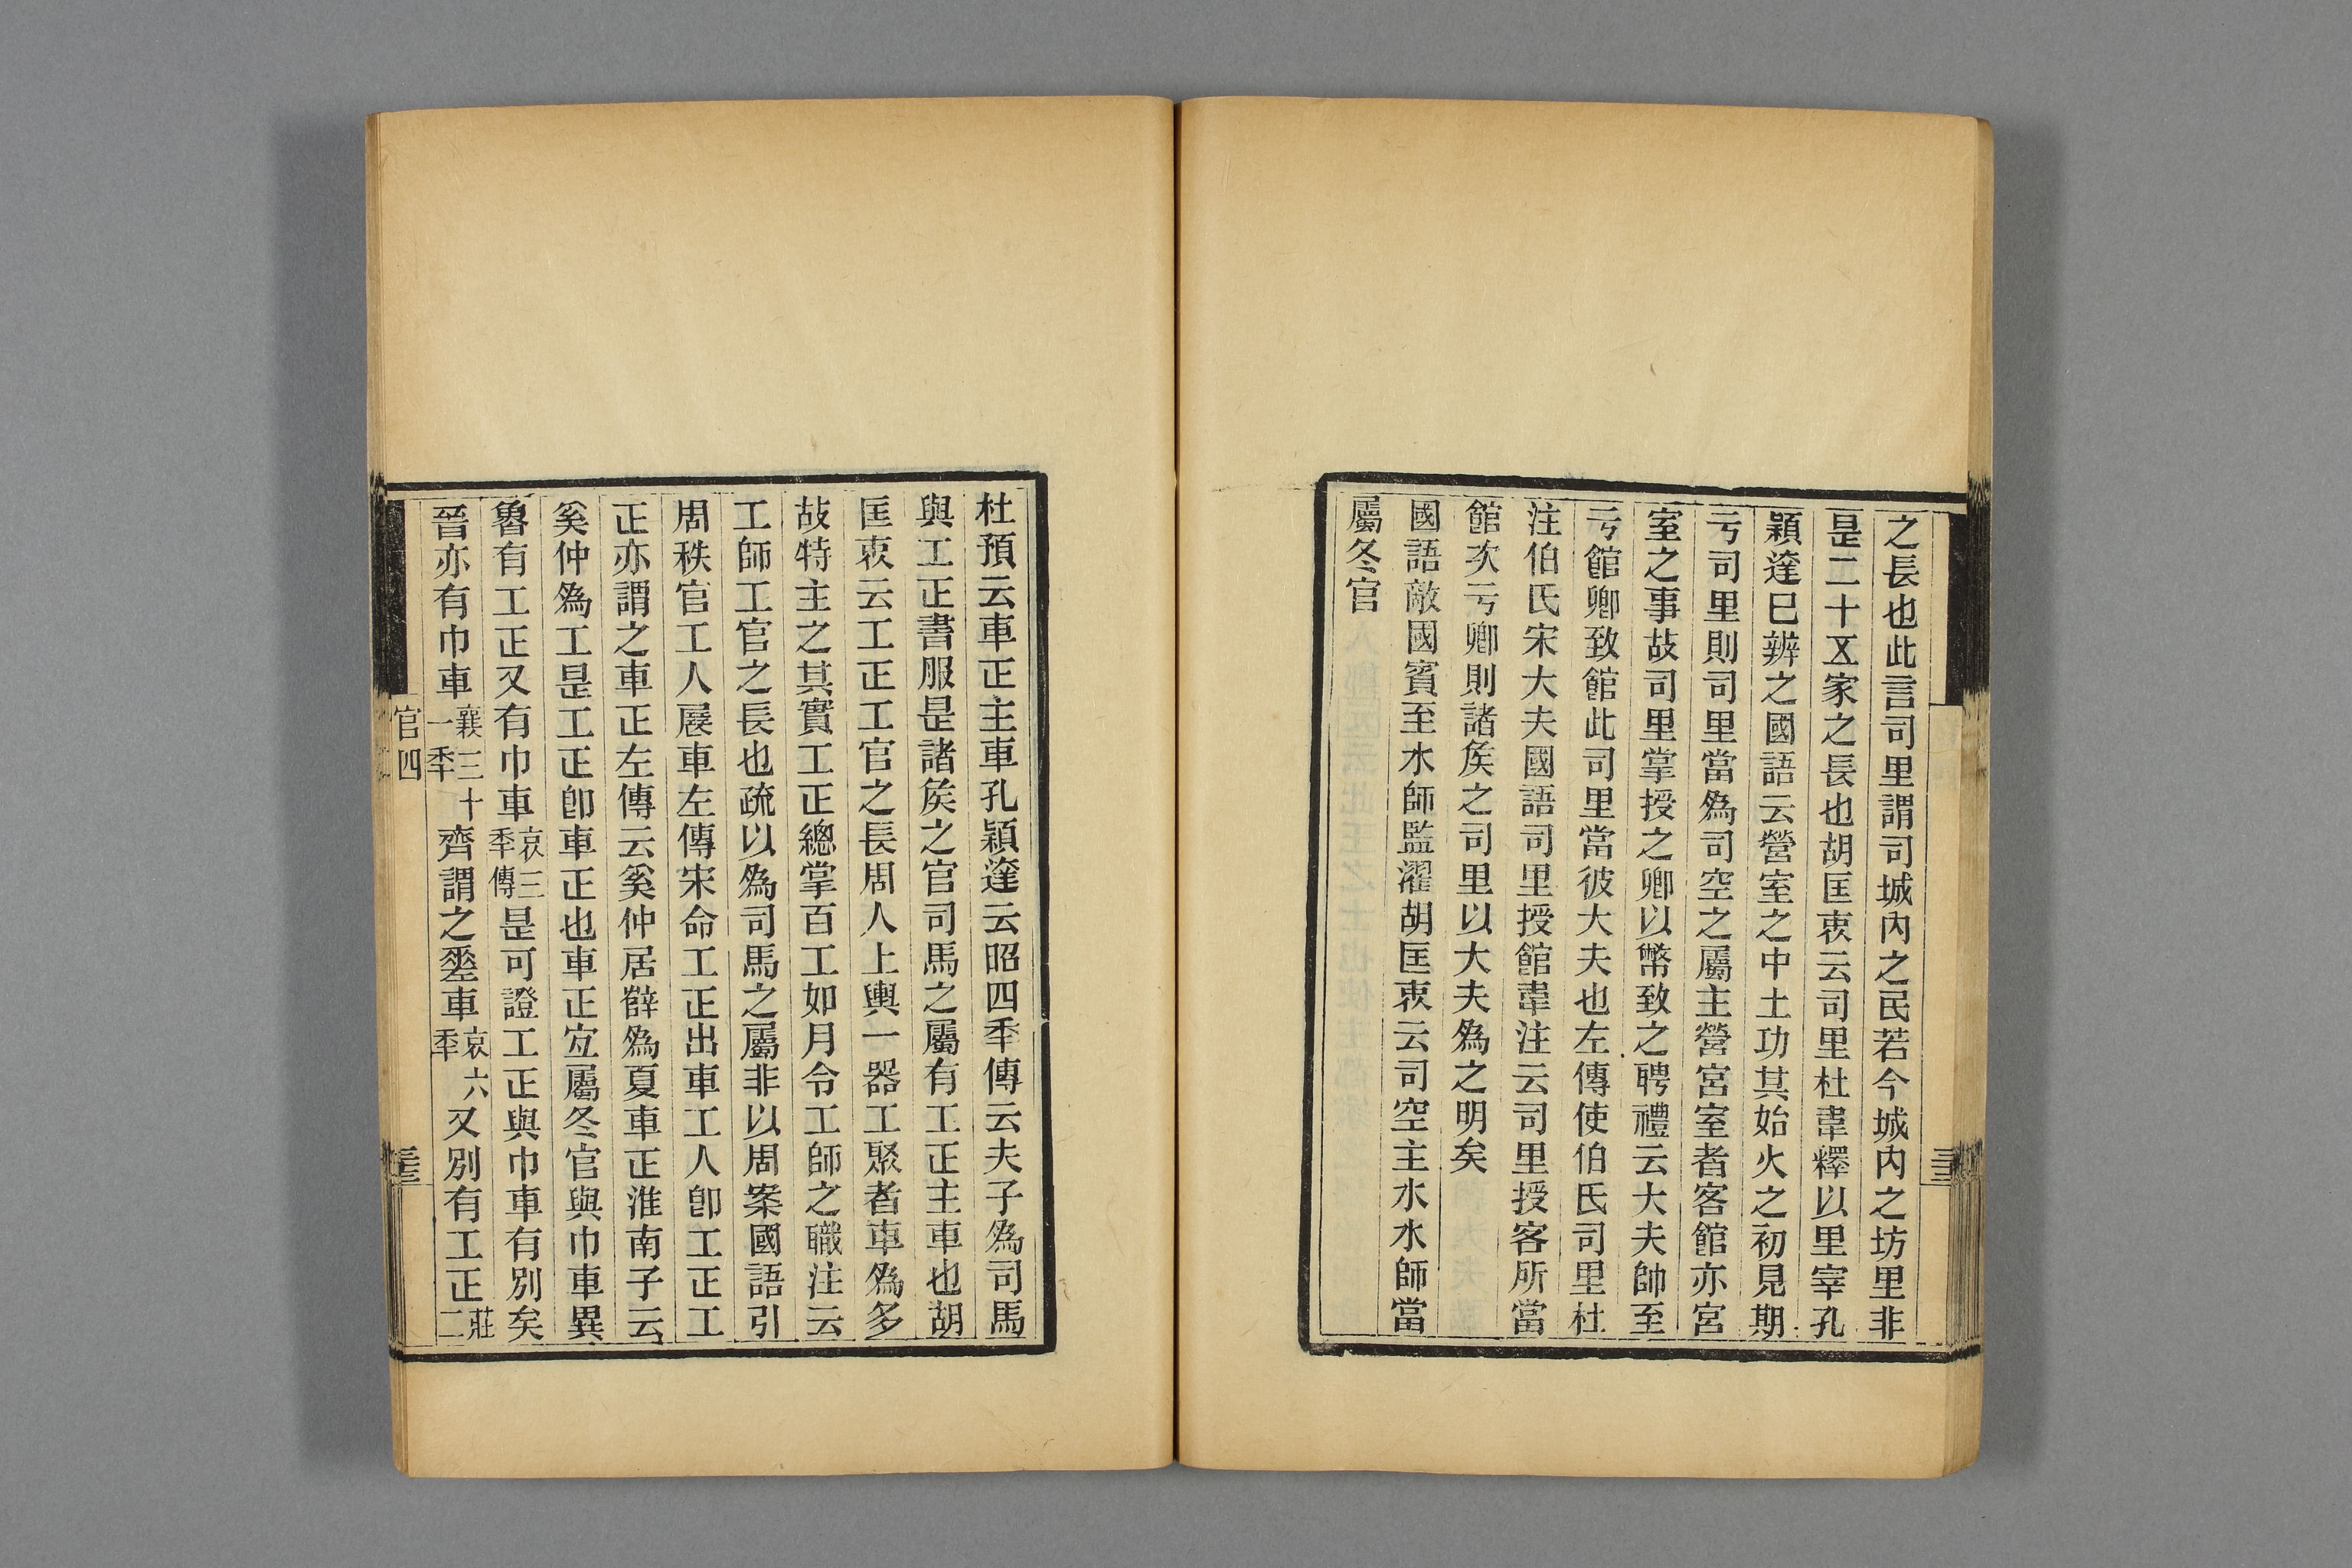 之長也此言司里謂司城內之民若今城內之坊里非
是二十五家之長也胡匡衷云司里杜韋釋以里宰孔
穎達已辨之國語云營室之中土功其始火之初見期
亏司里則司里當爲司空之屬主營宮室者客館亦宮
室之事故司里掌授之卿以幣致之聘禮云大夫帥至
亏館卿致館此司里當彼大夫也左傳使伯氏司里杜
注伯氏宋大夫國語司里授館韋注云司里授客所當
館次亏卿則諸矦之司里以大夫爲之明矣
國語敵國賓至水師監濯胡匡衷云司空主水水師當
屬冬官
杜預云車正主車孔穎達云昭四秊傳云夫子爲司馬
與工正書服是諸矦之官司馬之屬有工正主車也胡
匡衷云工正工官之長周人上輿一器工聚者車爲多
故特主之其實工正總掌百工如月令工師之職注云
工師工官之長也疏以爲司馬之屬非以周案國語引
周秩官工人展車左傳宋命工正出車工人卽工正工
正亦謂之車正左傳云奚仲居薛爲夏車正淮南子云
奚仲爲工是工正卽車正也車正宐屬冬官與巾車異
魯有工正又有巾車哀三秊傳是可證工正與巾車有別矣
晉亦有巾車襄三十一秊齊謂之車哀六秊又別有工正莊二
官四